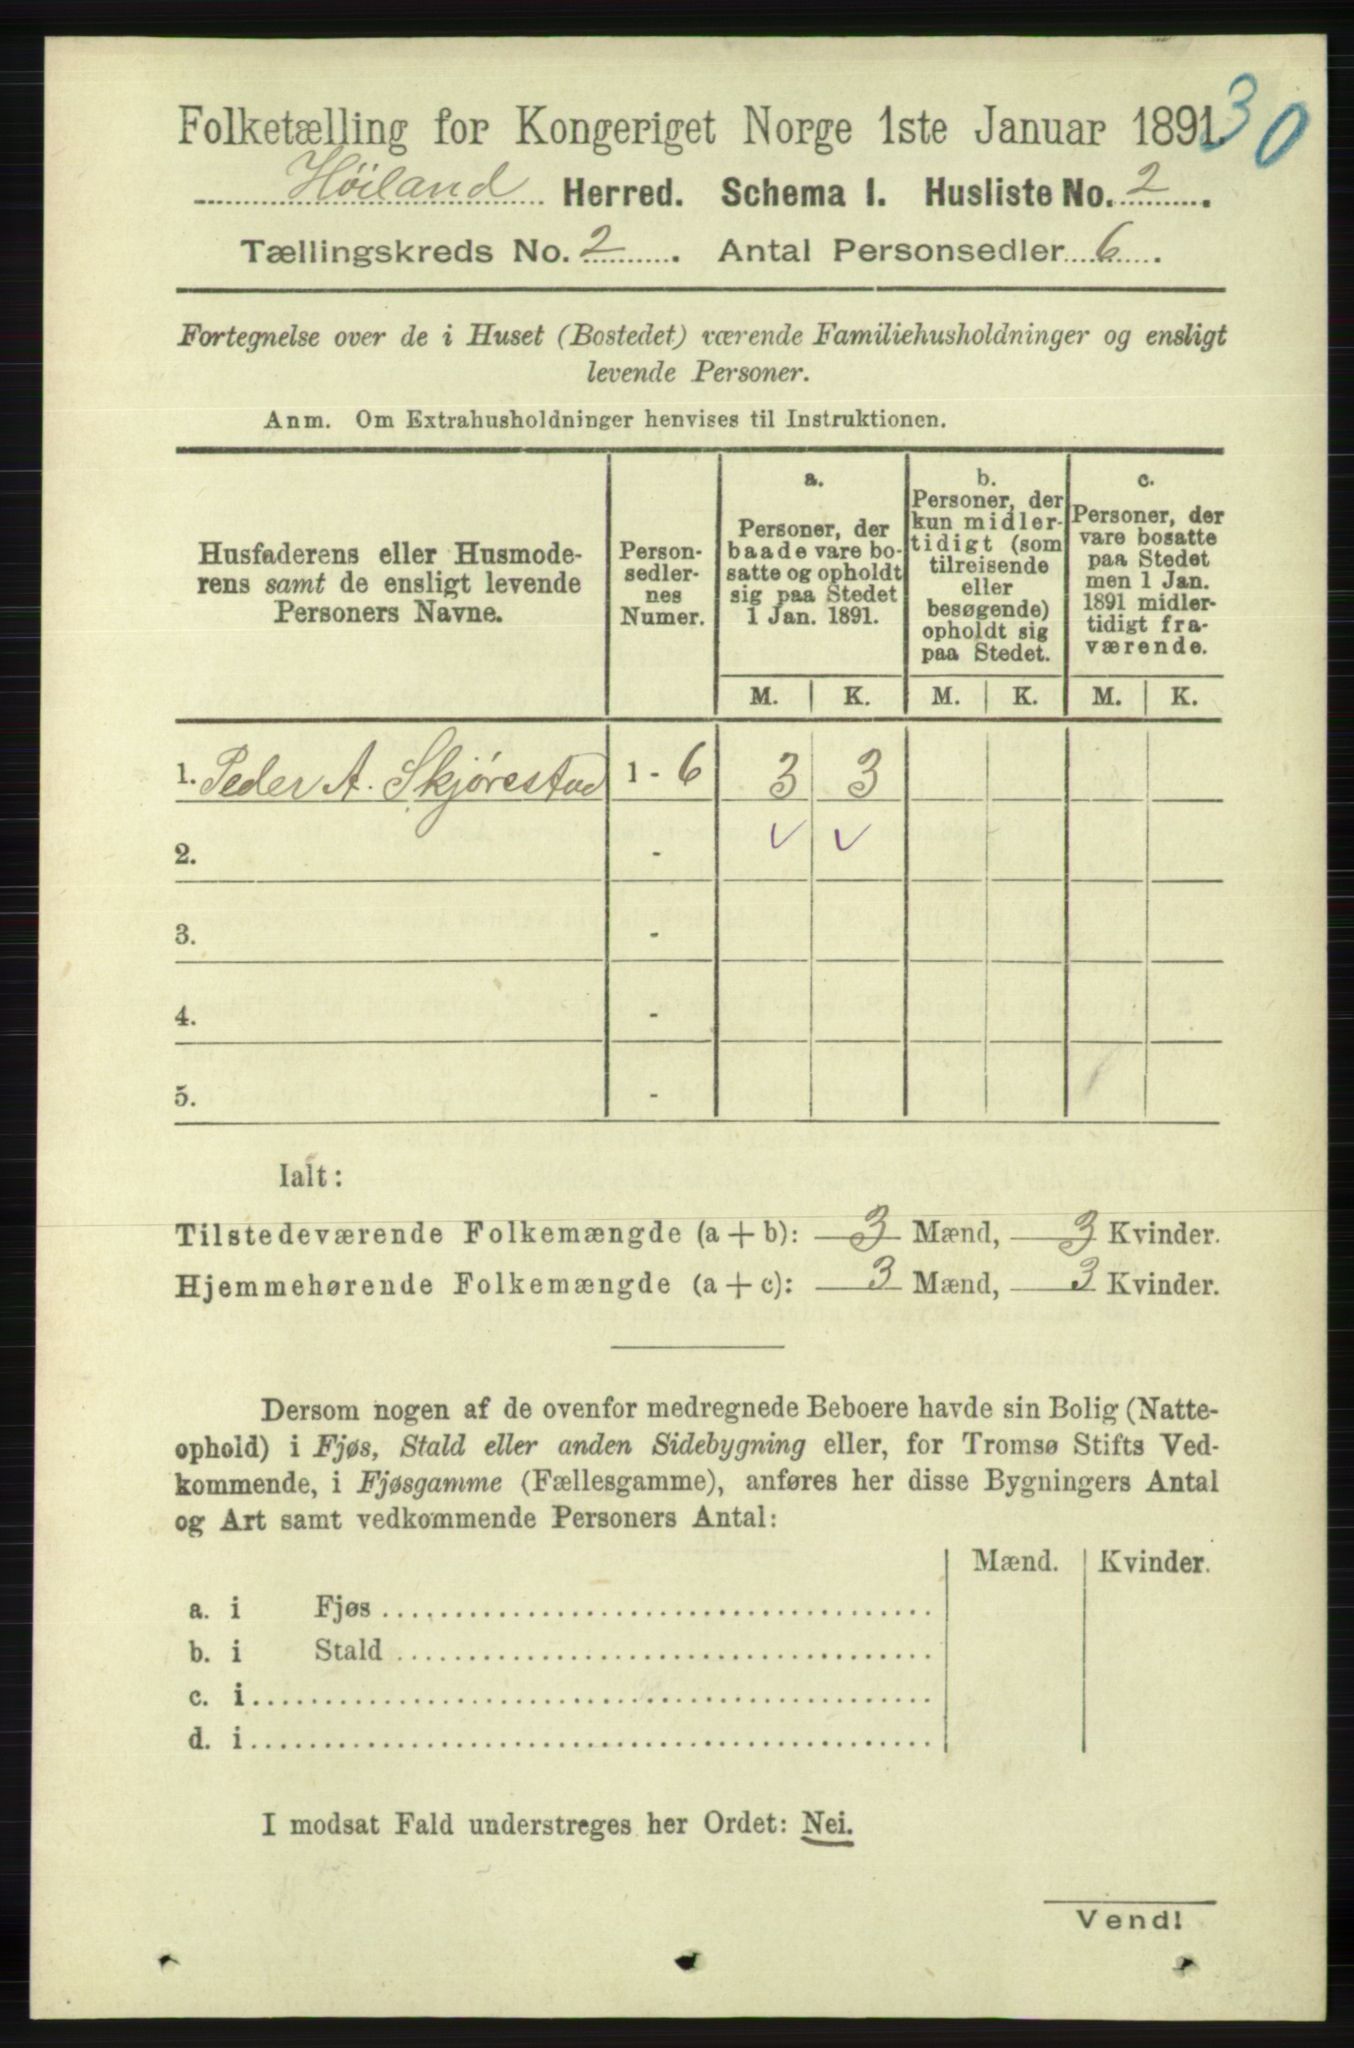 30
Folketælling for Kongeriget Norge 1ste Januar 1891.
Høiland Herred. Schema I. Husliste No. 2.
Tællingskreds No. 2. Antal Personsedler 6.
Fortegnelse over de i Huset (Bostedet) værende Familiehusholdninger og ensligt
levende Personer.
Anm. Om Extrahusholdninger henvises til Instruktionen.
Husfaderens eller Husmode-
rens samt de ensligt levende
Personers Navne.
Person-
sedler-
nes
Numer.
a.
Personer, der
baade vare bo-
satte og opholdt
sig paa Stedet
1 Jan. 1891.
b.
Personer, der
kun midler-
tidigt (som
tilreisende
eller
besøgende)
opholdt sig
paa Stedet.
c.
Personer, der
vare bosatte
paa Stedet
men 1 Jan.
1891 midler-
tidigt fra-
værende.
M. K. M. K. M. K.
1. Peder A. Skjørestad 1 - 6 3 3
2. - ✓ ✓
3. -
4. -
5. -
Ialt:
Tilstedeværende Folkemængde (a + b): 3 Mænd, 3 Kvinder.
Hjemmehørende Folkemængde (a + c): 3 Mænd, 3 Kvinder.
Dersom nogen af de ovenfor medregnede Beboere havde sin Bolig (Natte-
ophold) i Fjøs, Stald eller anden Sidebygning eller, for Tromsø Stifts Ved-
kommende, i Fjøsgamme (Fællesgamme), anføres her disse Bygningers Antal
og Art samt vedkommende Personers Antal:
Mænd. Kvinder.
a. i Fjøs
b. i Stald
c. i
d. i
I modsat Fald understreges her Ordet: Nei.
Vend!